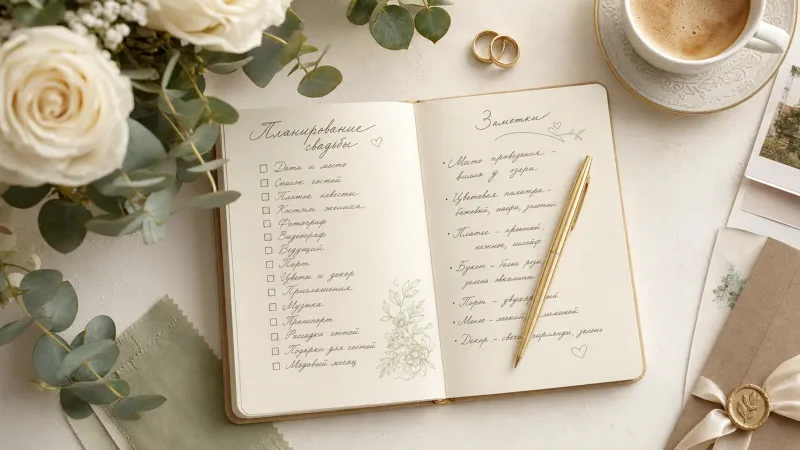 Планирование
свадьбы
Дата и место
Список гостей
Платье невесты
Костюм жениха
Фотограф
Видеограф
Ведущий
Торт
Цветы и декор
Приглашения
Музыка
Транспорт
Рассадка гостей
Подарки для гостей
Медовый месяц
Заметки
• Место проведения –
вилла у озера
• Цветовая палитра –
бежевый, шалфей, золотой
• Платье –
нежное, шлейф
• Букет – белые розы
зелень эвкалипт
• Торт –
• Меню – легкий,
• Декор – свечи, гирлянды, зелень